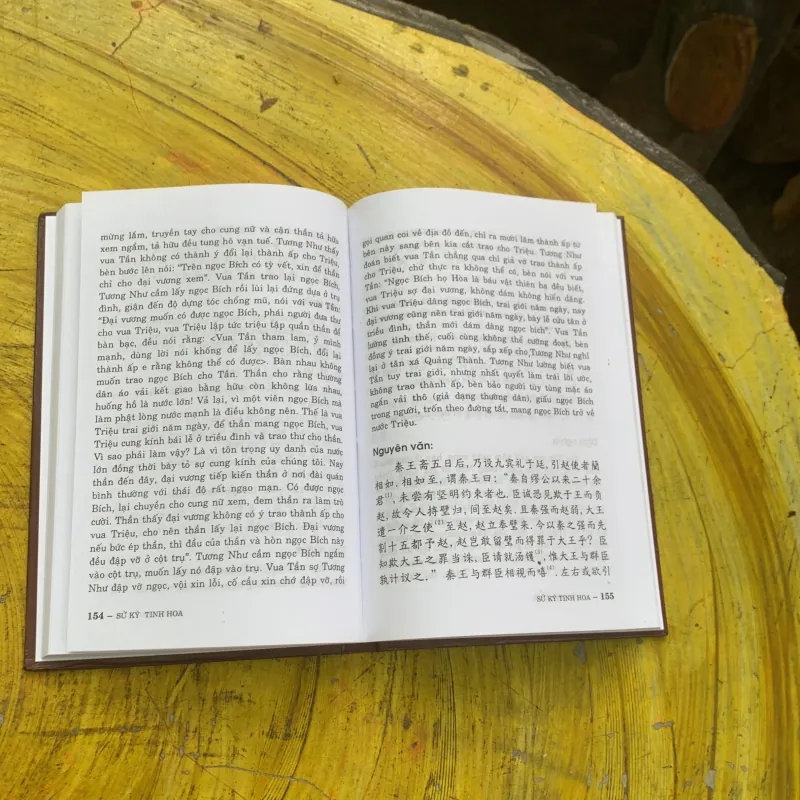 mừng lắm, truyền tay cho cung nữ và cận thần tả hữu
xem ngắm, tả hữu đều tung hô vạn tuế. Tương Như thấy
vua Tần không có thành ý đổi lại thành ấp cho Triệu,
bèn bước lên nói: "Trên ngọc Bích có tỳ vết, xin để thần
chỉ cho đại vương xem". Vua Tần trao lại ngọc Bích,
Tương Như cầm lấy ngọc Bích rồi lùi lại đứng dựa ở trụ
đình, giận đến độ dựng tóc chống mũ, nói với vua Tần:
"Đại vương muốn có được ngọc Bích, phái người đưa thư
cho vua Triệu, vua Triệu lập tức triệu tập quần thần để
bàn bạc, đều nói rằng: <Vua Tần tham lam, ỷ mình
mạnh, dùng lời nói không để lấy ngọc Bích, đổi lại
thành ấp e rằng không thể có được>. Bàn nhau không
muốn trao ngọc Bích cho Tần. Thần cho rằng thường
dân áo vải kết giao bằng hữu còn không lừa nhau,
huống hồ là nước lớn! Vả lại, vì một viên ngọc Bích mà
làm phật lòng nước mạnh là điều không nên. Thế là vua
Triệu trai giới năm ngày, để thần mang ngọc Bích, vua
Triệu cung kính bái lễ ở triều đình và trao thư cho thần.
Vì sao phải làm vậy? Là vì tôn trọng uy danh của nước
lớn đồng thời bày tỏ sự cung kính của chúng tôi. Nay
thần đến đây, đại vương tiếp kiến thần ở nơi đài quán
bình thường với thái độ rất ngạo mạn. Có được ngọc
Bích, lại chuyền cho cung nữ xem, đem thần ra làm trò
cười. Thần thấy đại vương không có ý trao thành ấp cho
vua Triệu, cho nên thần lấy lại ngọc Bích. Đại vương
nếu bức ép thần, thì đầu của thần và hòn ngọc Bích này
đều đập vỡ ở cột trụ". Tương Như cầm ngọc Bích ngắm
vào cột trụ, muốn lấy nó đập vào trụ. Vua Tần sợ Tương
Như đập vỡ ngọc, vội xin lỗi, cố cầu xin chớ đập vỡ, rồi
154 – SỬ KÝ TINH HOA
gọi quan coi về địa đồ đến, chỉ ra mười lăm thành ấp từ
bên này sang bên kia cắt trao cho Triệu. Tương Như
đoán biết vua Tần chẳng qua chỉ giả vờ trao thành ấp
cho Triệu, chứ thực ra không thể có, bèn nói với vua
Tần: "Ngọc Bích họ Hòa là báu vật thiên hạ đều biết,
vua Triệu sợ đại vương, không dám không hiến dâng.
Khi vua Triệu dâng ngọc Bích, trai giới năm ngày, nay
đại vương cũng nên trai giới năm ngày, bày lễ cửu tân ở
triều đình, thần mới dám dâng ngọc bích". Vua Tần
lường tình thế, cuối cùng không thể cưỡng đoạt, bèn
đồng ý trai giới năm ngày, sắp xếp cho Tương Như nghỉ
lại ở tân xá Quảng Thành. Tương Như lường biết vua
Tần tuy trai giới, nhưng nhất quyết làm trái lời ước,
không trao thành ấp, bèn bảo người tùy tùng mặc áo
ngắn vải thô (giả dạng thường dân), giấu ngọc Bích
trong người, trốn theo đường tắt, mang ngọc Bích trở về
nước Triệu.
Nguyên văn:
秦王斋五日后, 乃设九宾礼于廷, 引赵使者蔺
相如. 相如至, 谓秦王曰: "秦自缪公以来二十余
君⁽¹⁾, 未尝有坚明约束者也. 臣诚恐见欺于王而负
赵, 故令人持璧归, 间至赵矣. 且秦强而赵弱, 大王
遣一介之使⁽²⁾至赵, 赵立奉璧来. 今以秦之强而先
割十五都予赵, 赵岂敢留璧而得罪于大王乎? 臣
知欺大王之罪当诛, 臣请就汤镬⁽³⁾, 惟大王与群臣
孰计议之." 秦王与群臣相视而嘻⁽⁴⁾. 左右或欲引
SỬ KÝ TINH HOA – 155